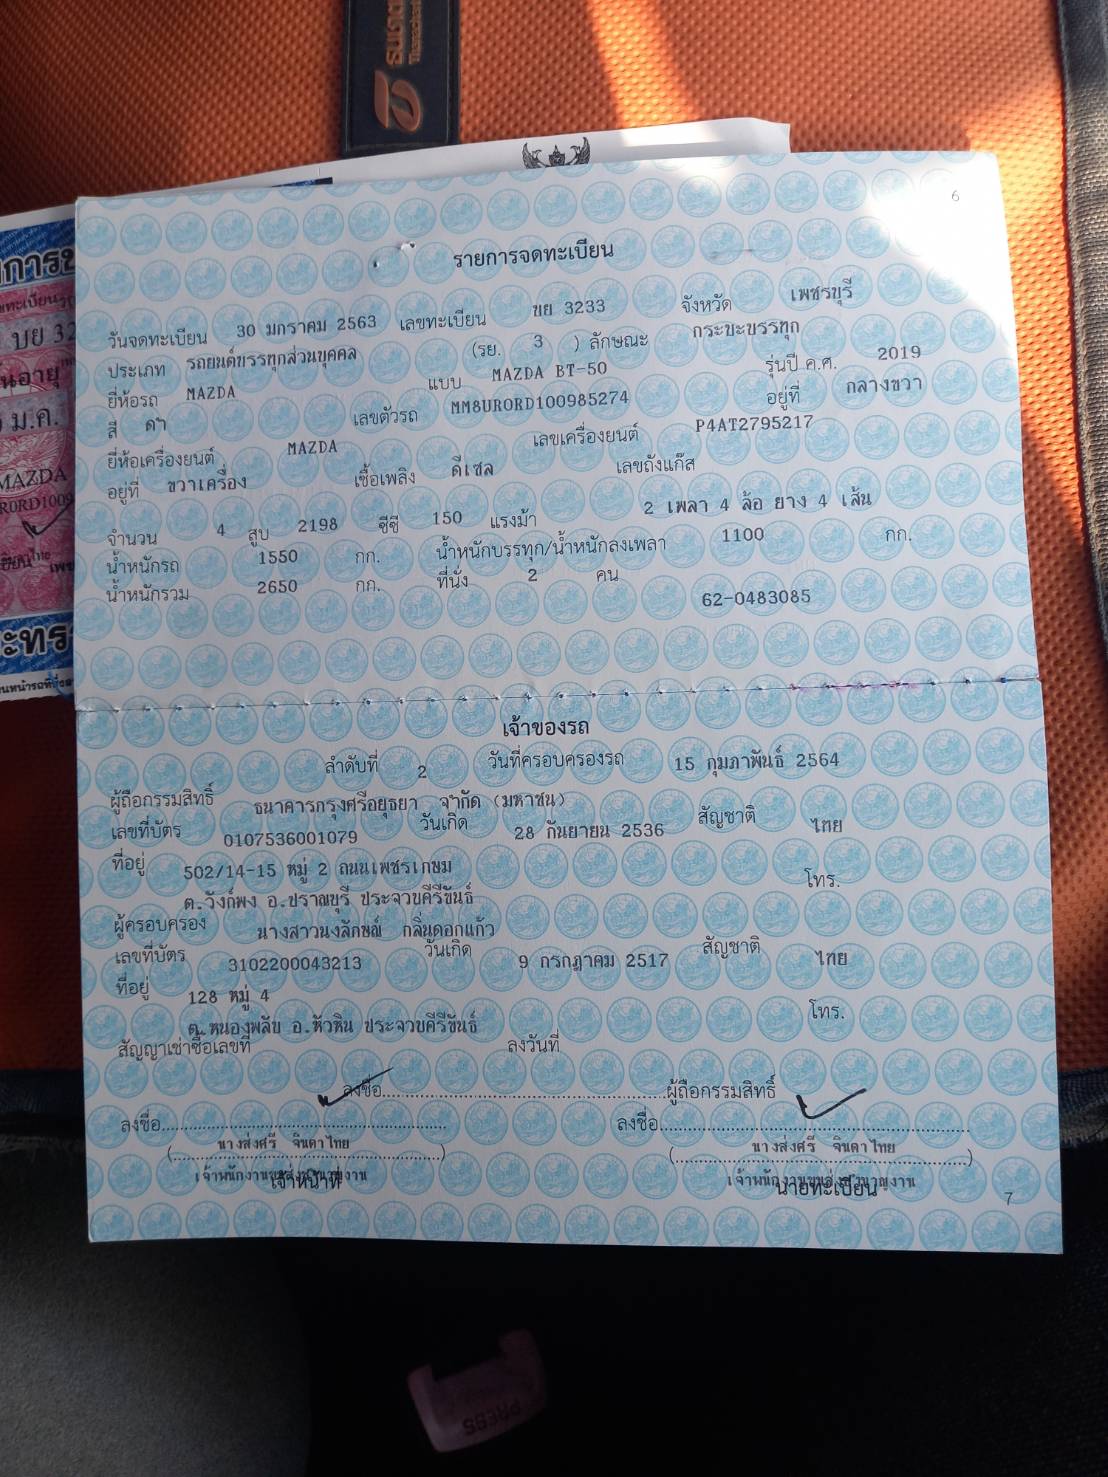 6
รายการจดทะเบียน
วันจดทะเบียน 30 มกราคม 2563 เลขทะเบียน บย 3233 จังหวัด เพชรบุรี
ประเภท รถยนต์บรรทุกส่วนบุคคล (รย. 3 ) ลักษณะ กระบะบรรทุก
ยี่ห้อรถ MAZDA แบบ MAZDA BT-50 รุ่นปี ค.ศ. 2019
สี ดำ เลขตัวรถ MM8URORD100985274 อยู่ที่ กลางขวา
ยี่ห้อเครื่องยนต์ MAZDA เลขเครื่องยนต์ P4AT2795217
อยู่ที่ ขวาเครื่อง เชื้อเพลิง ดีเซล เลขถังแก๊ส
จำนวน 4 สูบ 2198 ซีซี 150 แรงม้า 2 เพลา 4 ล้อ ยาง 4 เส้น
น้ำหนักรถ 1550 กก. น้ำหนักบรรทุก/น้ำหนักลงเพลา 1100 กก.
น้ำหนักรวม 2650 กก. ที่นั่ง 2 คน
62-0483085
เจ้าของรถ
ลำดับที่ 2 วันที่ครอบครองรถ 15 กุมภาพันธ์ 2564
ผู้ถือกรรมสิทธิ์ ธนาคารกรุงศรีอยุธยา จำกัด (มหาชน)
เลขที่บัตร 0107536001079 วันเกิด 28 กันยายน 2536 สัญชาติ ไทย
ที่อยู่ 502/14-15 หมู่ 2 ถนนเพชรเกษม โทร.
ต.วังก์พง อ.ปราณบุรี ประจวบคีรีขันธ์
ผู้ครอบครอง นางสาวนงลักษณ์ กลิ่นดอกแก้ว
เลขที่บัตร 3102200043213 วันเกิด 9 กรกฎาคม 2517 สัญชาติ ไทย
ที่อยู่ 128 หมู่ 4 โทร.
ต.หนองพลับ อ.หัวหิน ประจวบคีรีขันธ์
สัญญาเช่าซื้อเลขที่ ลงวันที่
ลงชื่อ ผู้ถือกรรมสิทธิ์
ลงชื่อ ลงชื่อ
(นางส่งศรี จินดาไทย) (นางส่งศรี จินดาไทย)
เจ้าพนักงานขนส่งชำนาญงาน เจ้าพนักงานขนส่งชำนาญงาน
เจ้าหน้าที่ นายทะเบียน
7
MAZDA
PRESS